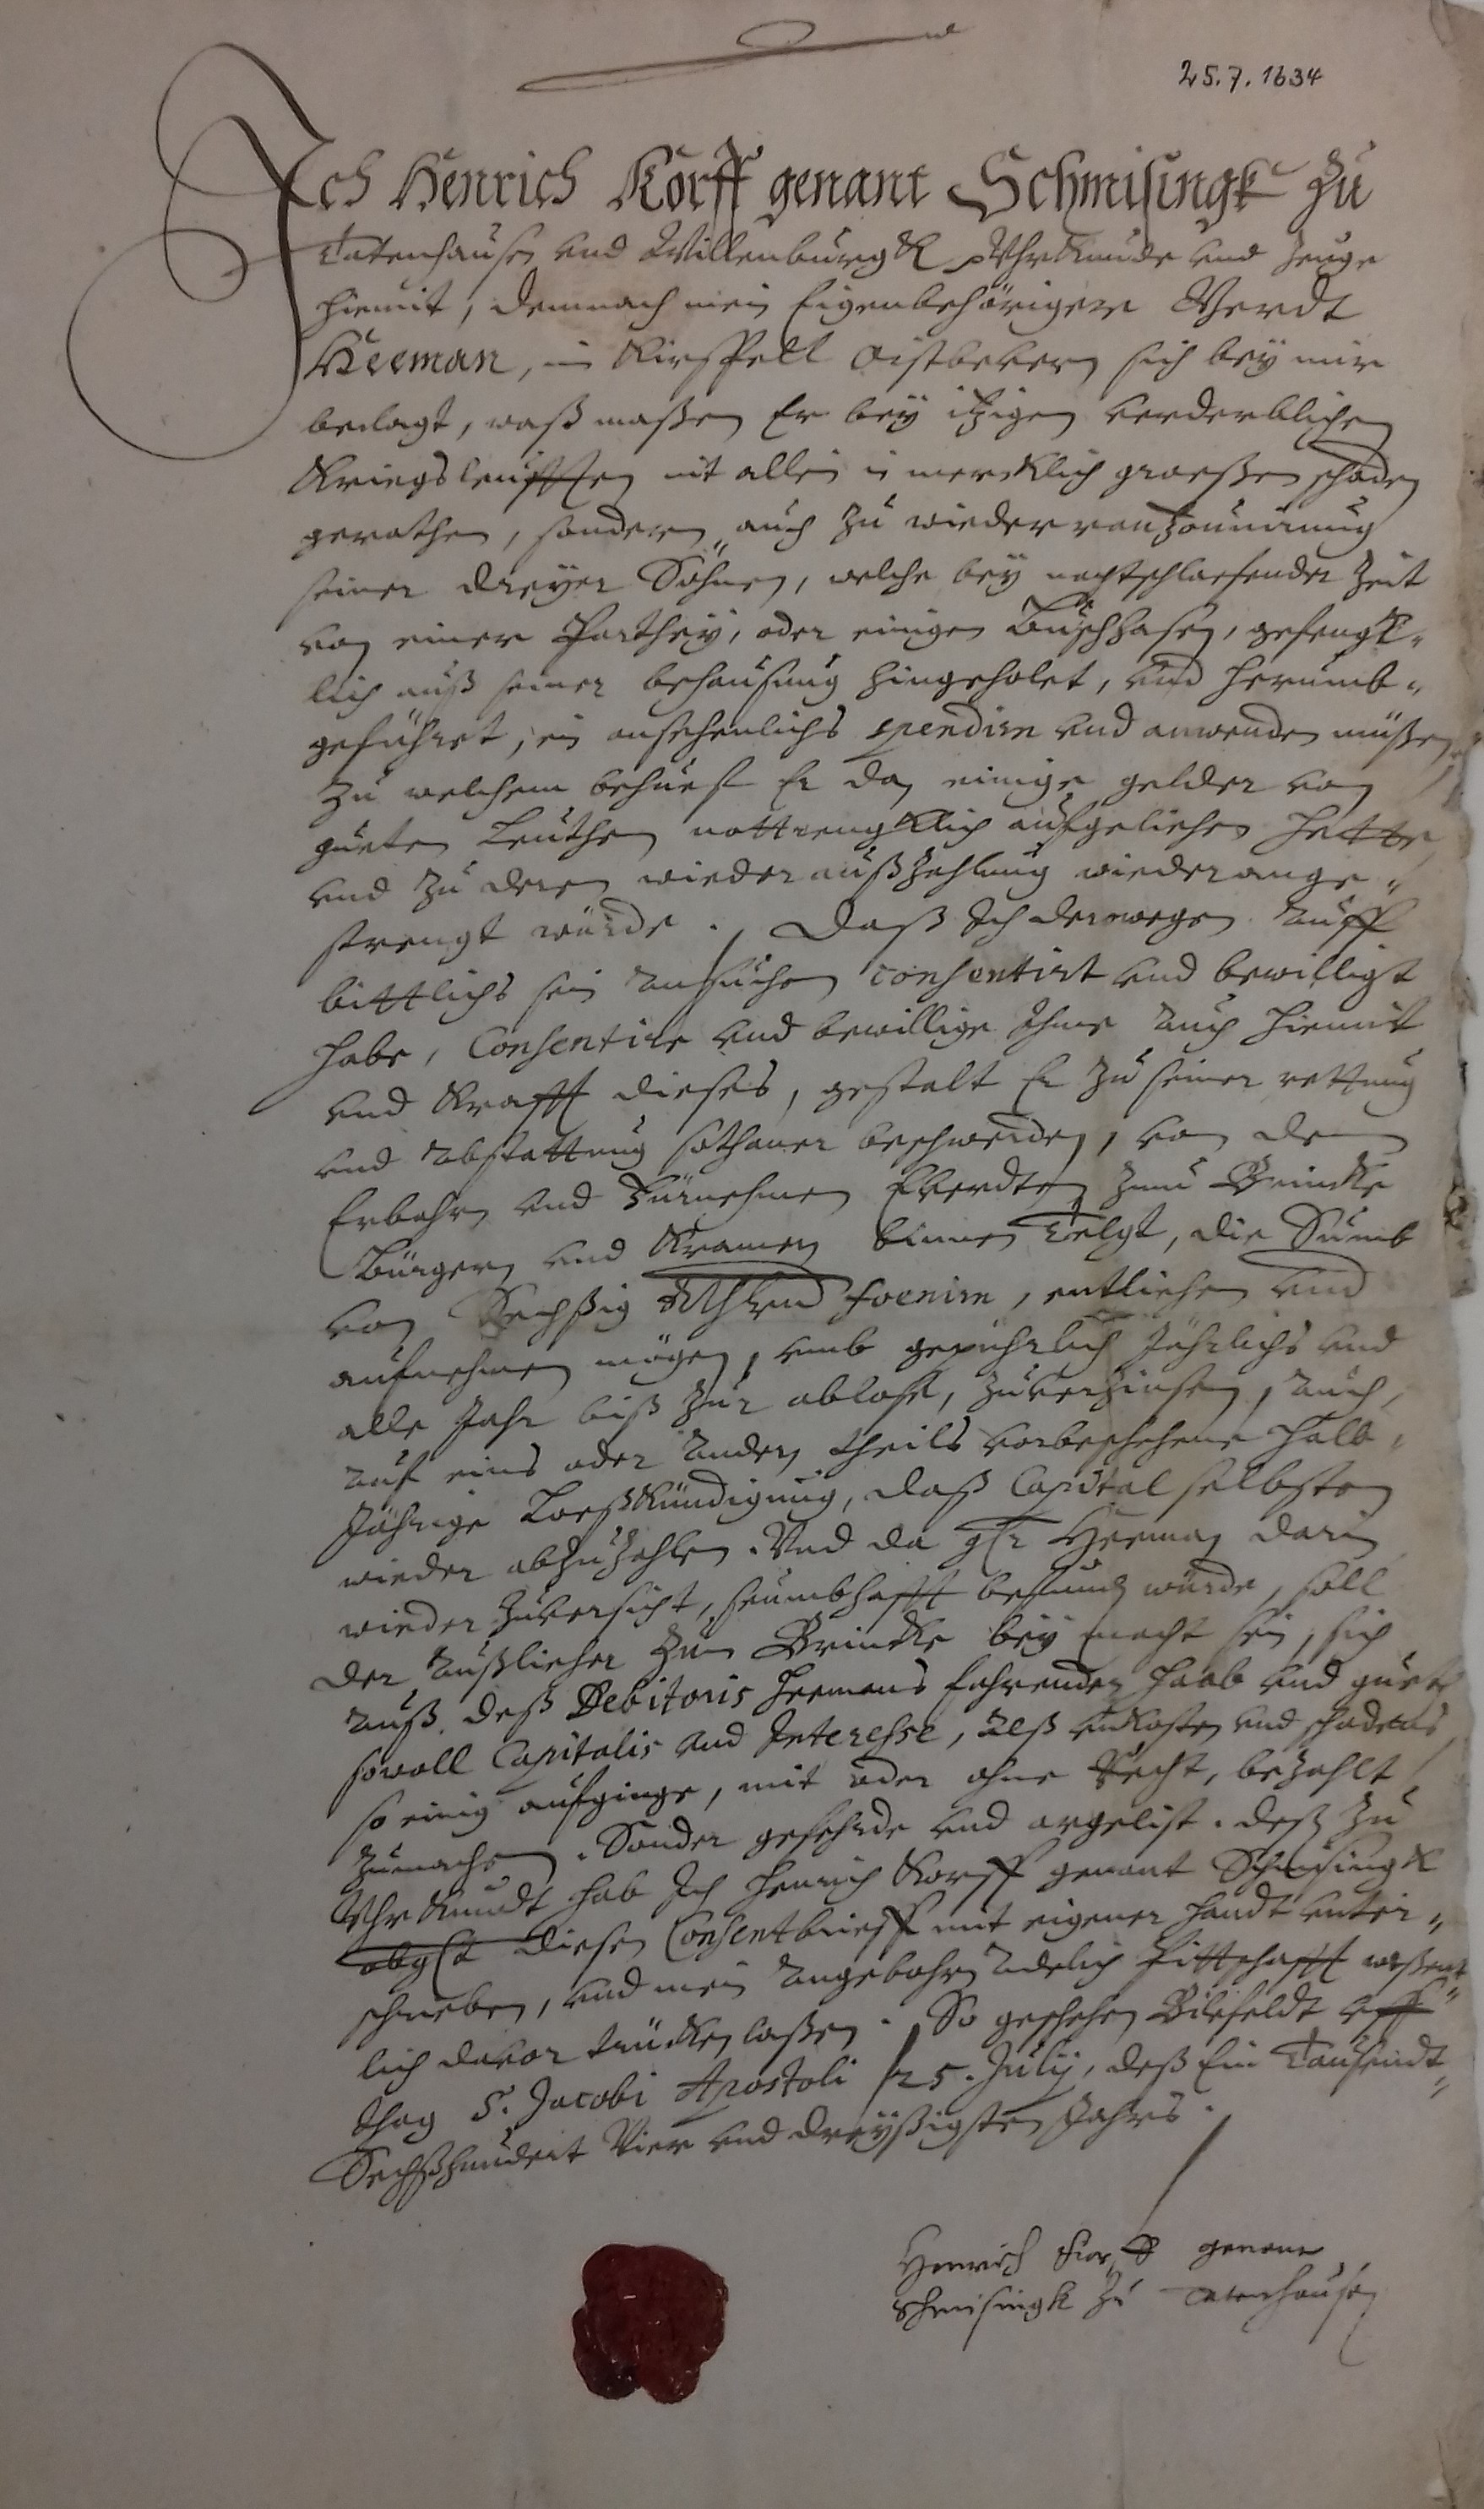 25.7.1634
Ich Henrich Korff genant Schmisingk zu
Tatenhausen vnd Willenburgk Vhrkunde vnd zeuge
hiemit, demnach mein Eigenbehöriger Everdt
Heeman, in Kirspell Oistbevern sich bey mir
beclagt, waß maßen Er bey itzigen verderblichen
Kriegsleufften nit allein in mercklich graeßen schaden
gerathen, sondern auch zu wiederrantzounirung
seiner dreyer Söhnen, welche bey nachtschlaefender Zeit
von einer Parthey, oder einigen Buschhasen, gefengk„
lich auß seiner behausung hingeholet, vnd herumb„
geführet, ein ansehenlichs spendirn vnd anwenden müßen,
zu welchem behueff Er dan einige gelder von
gueten Leuthen nottrengklich aufgeliehen hette,
vnd zu deren wiederaußzahlung wiederange„
strengt würde. Daß Ich derwegen auff
bittlichs sein ansuchen consentirt vnd bewilligt
habe, Consentire vnd bewillige Ihme auch hiemit
vnd Krafft dieses, gestalt Er zu seiner rettung
vnd abstattung sothaner beschwerden, von dem
Erbahrn vnd Fürnehmen Everdten zum Brincke
Bürgern vnd Kramern binnen Telgt, die Summ
von Sechßig Rthlrn foenirn, entliehen vnd
aufnehmen mögen, vmb gepührlich Jährlichs vnd
alle Jahr biß zur ablose, zuverzinsen, auch,
auf eins oder andern theils vorbeschehene halb„
Jährige Loeßkündigung, daß Capital selbsten
wieder abzuzahlen. Vnd da gtr Heeman darin
wieder zuversicht, seumbhafft befundn würde, soll
der außlieher zum Brincke bey macht sein, sich
auß deß Debitoris Heemans fahrender Haab vnd guetern
sowoll Capitalis vnd Interesse, alß vnkosten vnd schadens
so einig aufginge, mit oder ohne Recht, bezahlt
zumachen. Sonder gefehrde vnd argelist. Deß zu
Vhrkundt hab Ich Henrich Korff genant Schmisingk
obgt diesen Consentbrieff mit eigener handt vnter„
schrieben, vnd mein angebohrn adelich Pittschafft wißent„
lich davor trücken laßen. So geschehen Bilefeldt vff
thag S. Jacobi Apostoli 25. July, deß Ein Tausendt„
Sechßhundert Vier vnd dreyßigsten Jahrs.
Henrich Korff genant
Schmisingk zu Tatenhausen